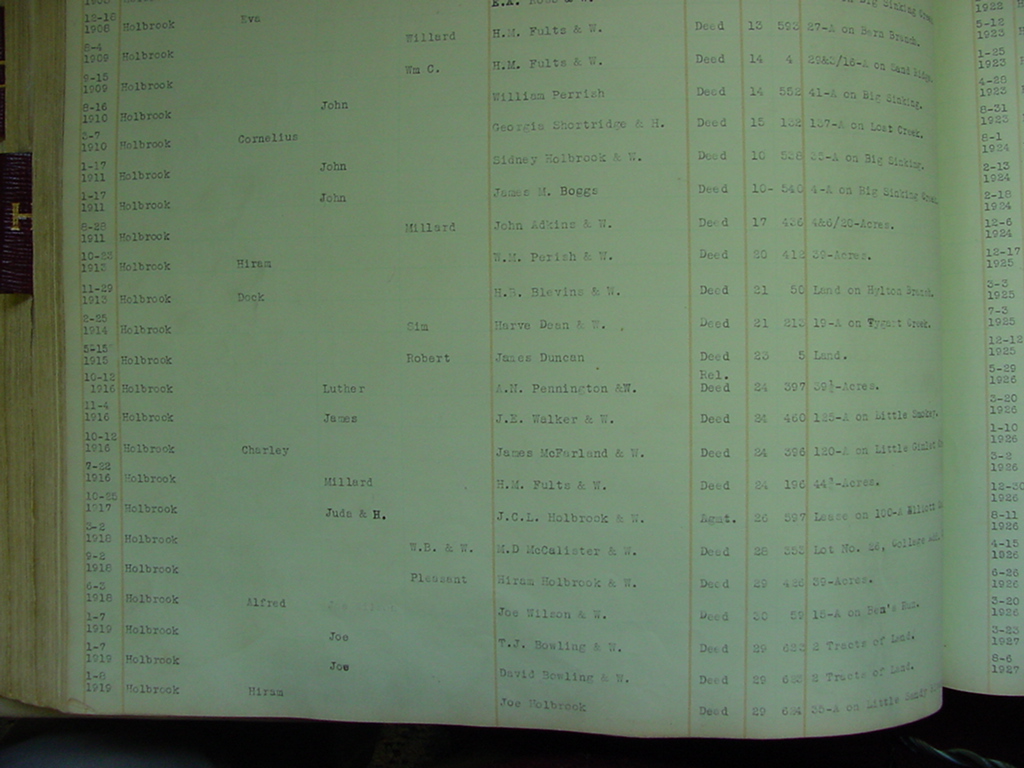 E.A. & W.
12-18 1908 Holbrook Eva H.M. Fults & W. Deed 13 593 27-A on Bern Branch.
8-4 1909 Holbrook Willard H.M. Fults & W. Deed 14 4 on Sand
9-15 1909 Holbrook Wm C. William Perrish Deed 14 552 41-A on Big Sinking.
8-16 1910 Holbrook John Georgia Shortridge & H. Deed 15 132 137-A on Lost Creek.
3-7 1910 Holbrook Cornelius Sidney Holbrook & W. Deed 10 on Big Sinking.
1-17 1911 Holbrook John James M. Boggs Deed 10- 540 4-A on Big Sinking
1-17 1911 Holbrook John John Adkins & W. Deed 17 436 4&6/20-Acres.
8-28 1911 Holbrook Millard W.M. Perish & W. Deed 20 412 39-Acres.
10-23 1913 Holbrook Hiram H.B. Blevins & W. Deed 21 50 Land on Hylton Branch.
11-29 1913 Holbrook Dock Harve Dean & W. Deed 21 213 19-A on Tygart Creek.
2-25 1914 Holbrook Sim James Duncan Deed 23 5 Land.
5-15 1915 Holbrook Robert A.N. Pennington &W. Rel. Deed 24 397 39½-Acres.
10-12 1916 Holbrook Luther J.E. Walker & W. Deed 24 460 125-A on Little
11-4 1916 Holbrook James James McFarland & W. Deed 24 396 120-A on Little
10-12 1916 Holbrook Charley H.M. Fults & W. Deed 24 196
7-22 1916 Holbrook Millard J.C.L. Holbrook & W. Agmt. 26 597 Lease on 100-A
10-25 1917 Holbrook Juda & H. M.D McCalister & W. Deed 28 353 Lot No. College
3-2 1918 Holbrook W.B. & W. Hiram Holbrook & W. Deed 29 39-Acres.
9-2 1918 Holbrook Pleasant Joe Wilson & W. Deed 30 59 15-A on Ben's Run.
6-3 1918 Holbrook Alfred T.J. Bowling & W. Deed 29 2 Tracts of Land.
1-7 1919 Holbrook Joe David Bowling & W. Deed 29 2 Tracts of Land.
1-7 1919 Holbrook Joe Joe Holbrook Deed 29 634 35-A on Little Sandy
1-8 1919 Holbrook Hiram
H
1922
5-12 1923
1-25 1923
4-20 1923
8-31 1923
8-1 1924
2-13 1924
2-18 1924
12-6 1924
12-17 1925
3-3 1925
7-3 1925
12-12 1925
5-29 1926
3-20 1926
1-10 1926
3-2 1926
12-30 1926
8-11 1926
4-15 1926
6-26 1926
3-20 1926
3-23 1927
8-6 1927